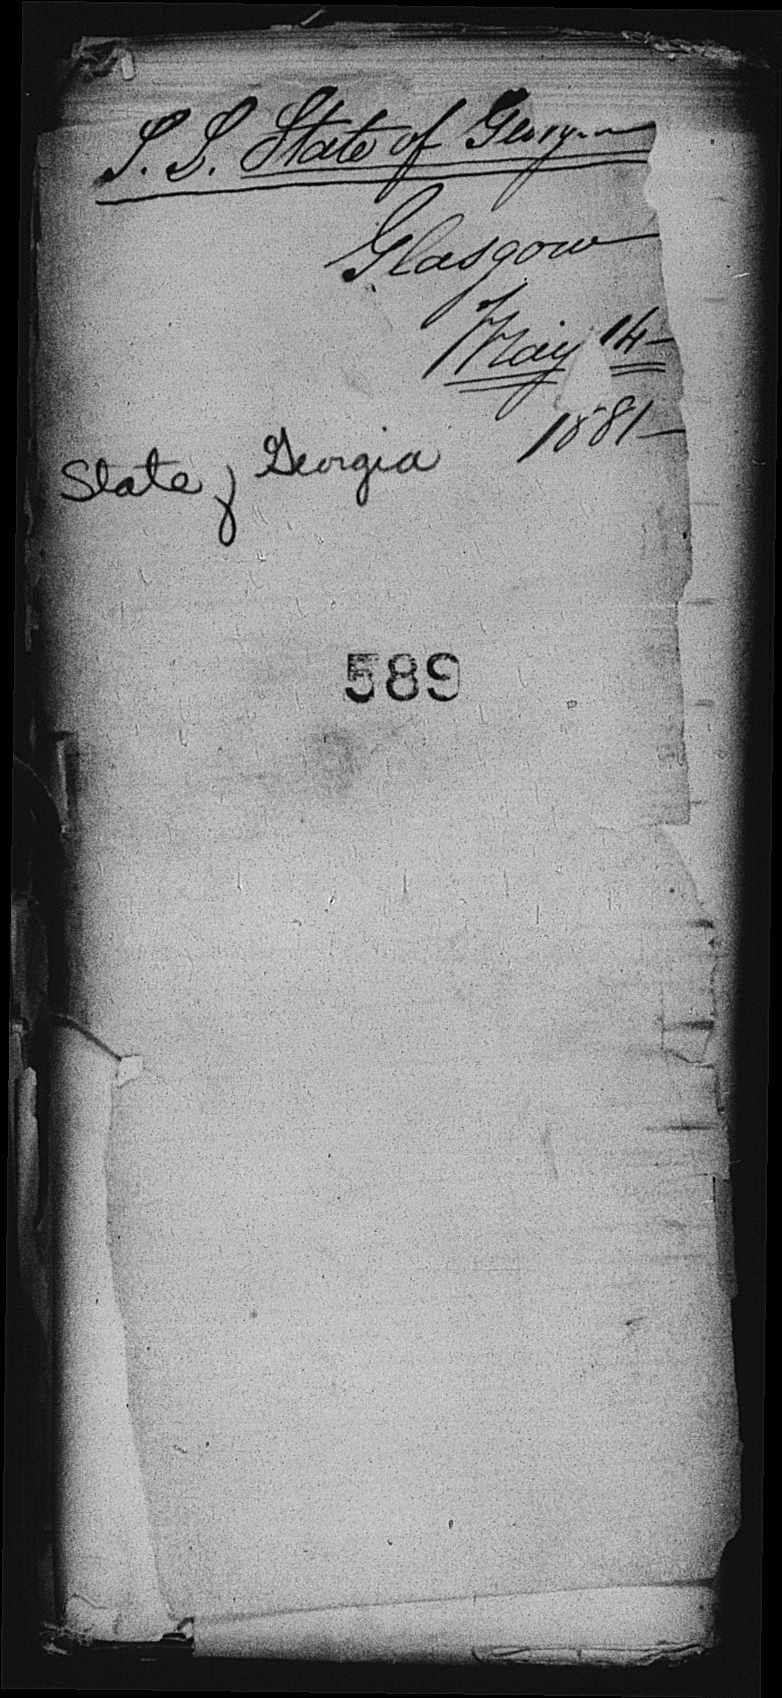 S. S. State of Georgia
Glasgow
May 14
1881
State of Georgia
589